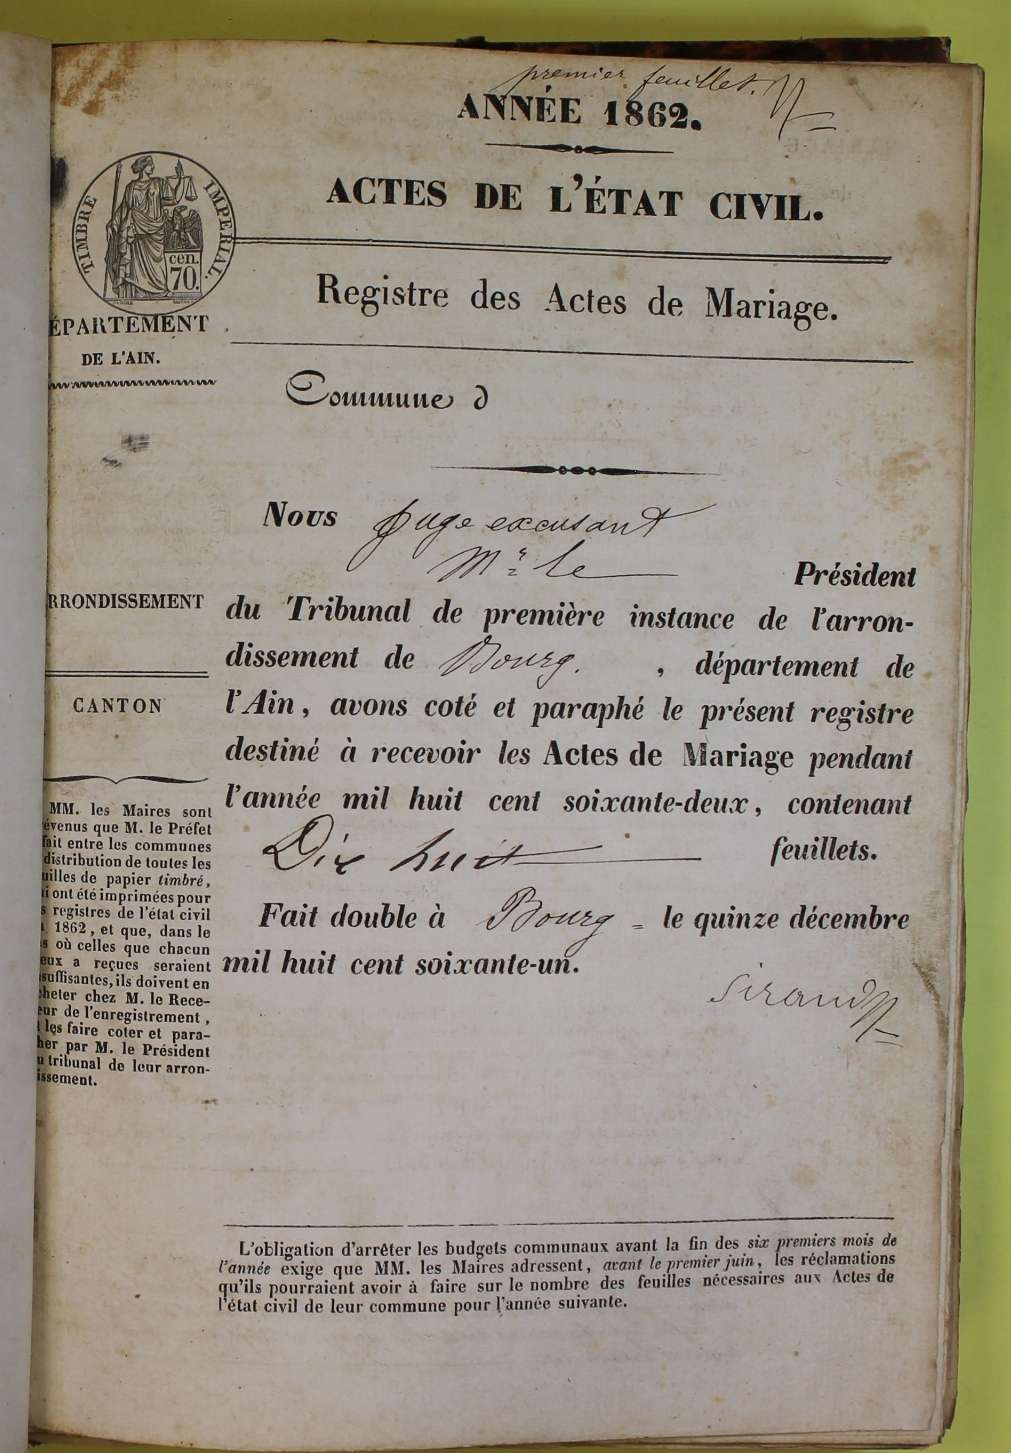 premier feuillet.
ANNÉE 1862.
ACTES DE L'ÉTAT CIVIL.
TIMBRE IMPERIAL.
cen.
70.
Registre des Actes de Mariage.
ÉPARTEMENT
DE L'AIN.
Commune d
Nous juge excusant
Mr le Président
RRONDISSEMENT
du Tribunal de première instance de l'arron-
dissement de Bourg. , département de
CANTON
l'Ain, avons coté et paraphé le présent registre
destiné à recevoir les Actes de Mariage pendant
l'année mil huit cent soixante-deux, contenant
Dix huit feuillets.
Fait double à Bourg = le quinze décembre
mil huit cent soixante-un.
Sirand
MM. les Maires sont
évenus que M. le Préfet
fait entre les communes
distribution de toutes les
uilles de papier timbré,
i ont été imprimées pour
s registres de l'état civil
1862, et que, dans le
s où celles que chacun
eux a reçues seraient
suffisantes, ils doivent en
cheter chez M. le Rece-
eur de l'enregistrement,
t les faire coter et para-
her par M. le Président
u tribunal de leur arron-
issement.
L'obligation d'arrêter les budgets communaux avant la fin des six premiers mois de
l'année exige que MM. les Maires adressent, avant le premier juin, les réclamations
qu'ils pourraient avoir à faire sur le nombre des feuilles nécessaires aux Actes de
l'état civil de leur commune pour l'année suivante.